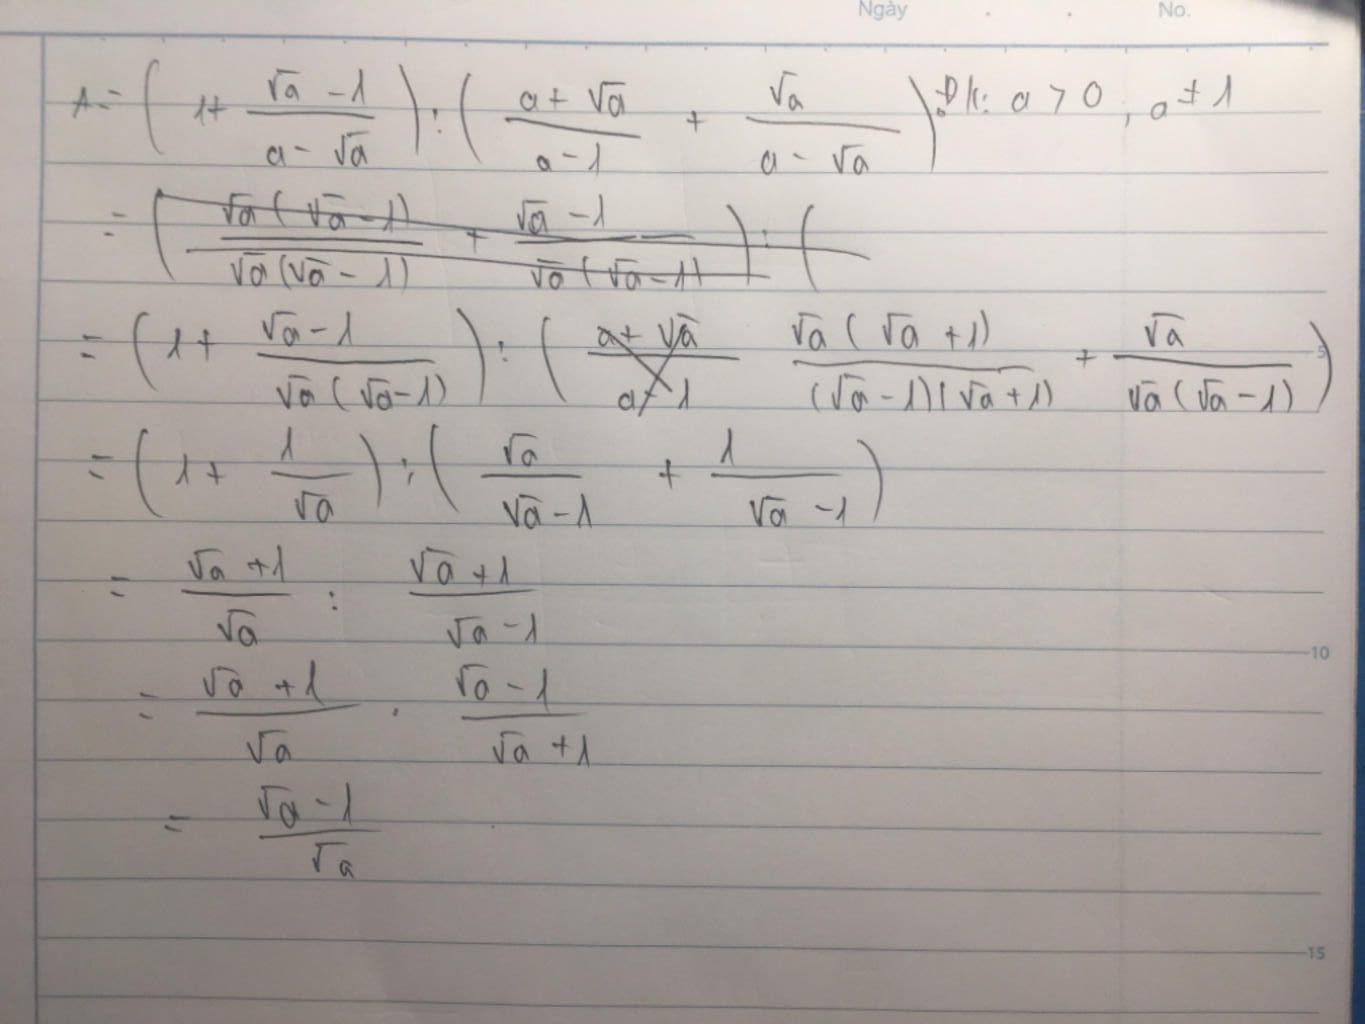 Ngày . . No.
A = ( 1 + (√a - 1)/(a - √a) ) : ( (a + √a)/(a - 1) + √a/(a - √a) ) ĐK: a > 0 , a ≠ 1
= ( √a(√a - 1)/(√a(√a - 1)) + (√a - 1)/(√a(√a - 1)) ) : (
= ( 1 + (√a - 1)/(√a(√a - 1)) ) : ( (a + √a)/(a - 1) √a(√a + 1)/((√a - 1)(√a + 1)) + √a/(√a(√a - 1)) )
5
= ( 1 + 1/√a ) : ( √a/(√a - 1) + 1/(√a - 1) )
= (√a + 1)/√a : (√a + 1)/(√a - 1)
10
= (√a + 1)/√a . (√a - 1)/(√a + 1)
= (√a - 1)/√a
15